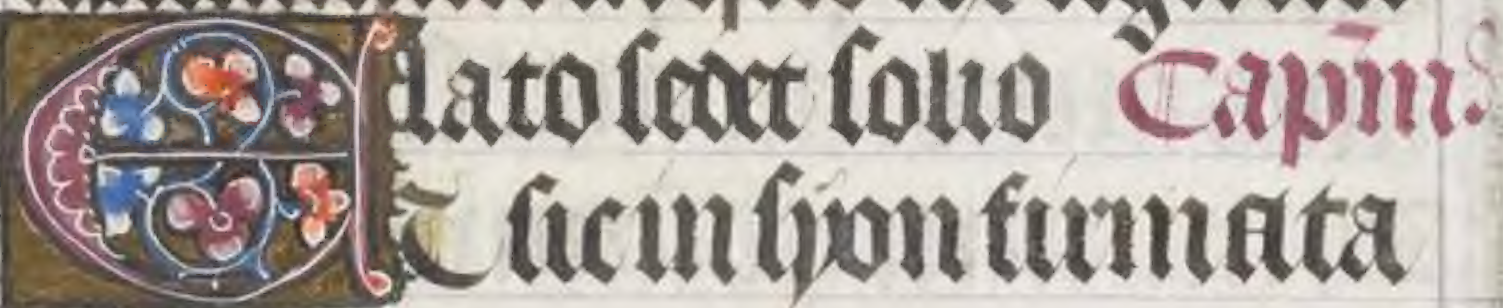 lato sedet solio Cap̄m.
ET sic in syon firmata